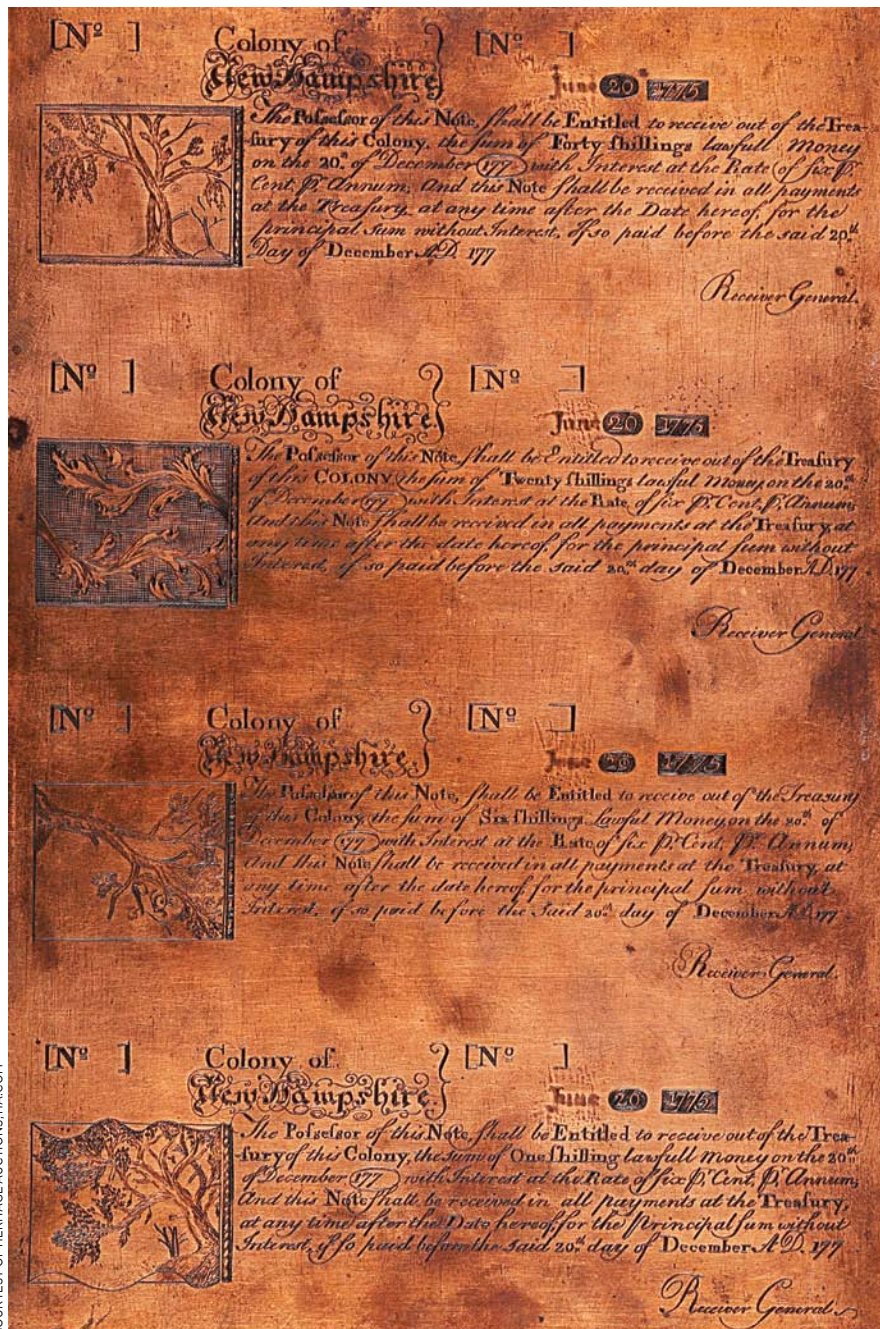 [Nº ] Colony of [Nº ]
New Hampshire June 20th 1775
The Possessor of this Note, shall be Entitled to receive out of the Trea-
sury of this Colony, the sum of Forty shillings lawfull Money
on the 20.th of December 177 with Interest at the Rate of six P.
Cent, P. Annum; And this Note shall be received in all payments
at the Treasury at any time after the Date hereof, for the
principal Sum without Interest, if so paid before the said 20.th
Day of December A.D. 177
Receiver General.
[Nº ] Colony of [Nº ]
New Hampshire June 20 1775
The Possessor of this Note, shall be Entitled to receive out of the Treasury
of this COLONY the sum of Twenty shillings lawful Money on the 20.th
of December 177 with Interest at the Rate of six P. Cent, P. Annum;
And this Note shall be received in all payments at the Treasury, at
any time after the date hereof, for the principal sum without
Interest, if so paid before the said 20.th day of December A.D. 177
Receiver General
[Nº ] Colony of [Nº ]
New Hampshire June 20 1775
The Possessor of this Note, shall be Entitled to receive out of the Treasury
of this Colony, the sum of Six shillings Lawful Money, on the 20.th of
December 177 with Interest at the Rate of six P. Cent, P. Annum;
And this Note shall be received in all payments at the Treasury, at
any time after the date hereof, for the principal sum without
Interest, if so paid before the said 20.th day of December A.D. 177
Receiver General.
[Nº ] Colony of [Nº ]
New Hampshire June 20 1775
The Possessor of this Note, shall be Entitled to receive out of the Trea-
sury of this Colony, the sum of One shilling lawfull Money on the 20.th
of December 177 with Interest at the Rate of six P. Cent, P. Annum;
And this Note shall be received in all payments at the Treasury,
at any time after the Date hereof, for the Principal sum without
Interest, if so paid before the said 20.th day of December A.D. 177
Receiver General.
COURTESY OF HERITAGE AUCTIONS, HA.COM